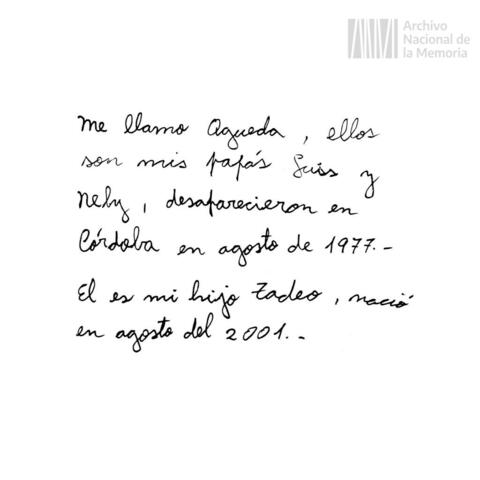 Archivo
Nacional de
la Memoria
Me llamo Agueda, ellos
son mis papás Luis y
Nely, desaparecieron en
Córdoba en agosto de 1977.-
El es mi hijo Tadeo, nació
en agosto del 2001.-